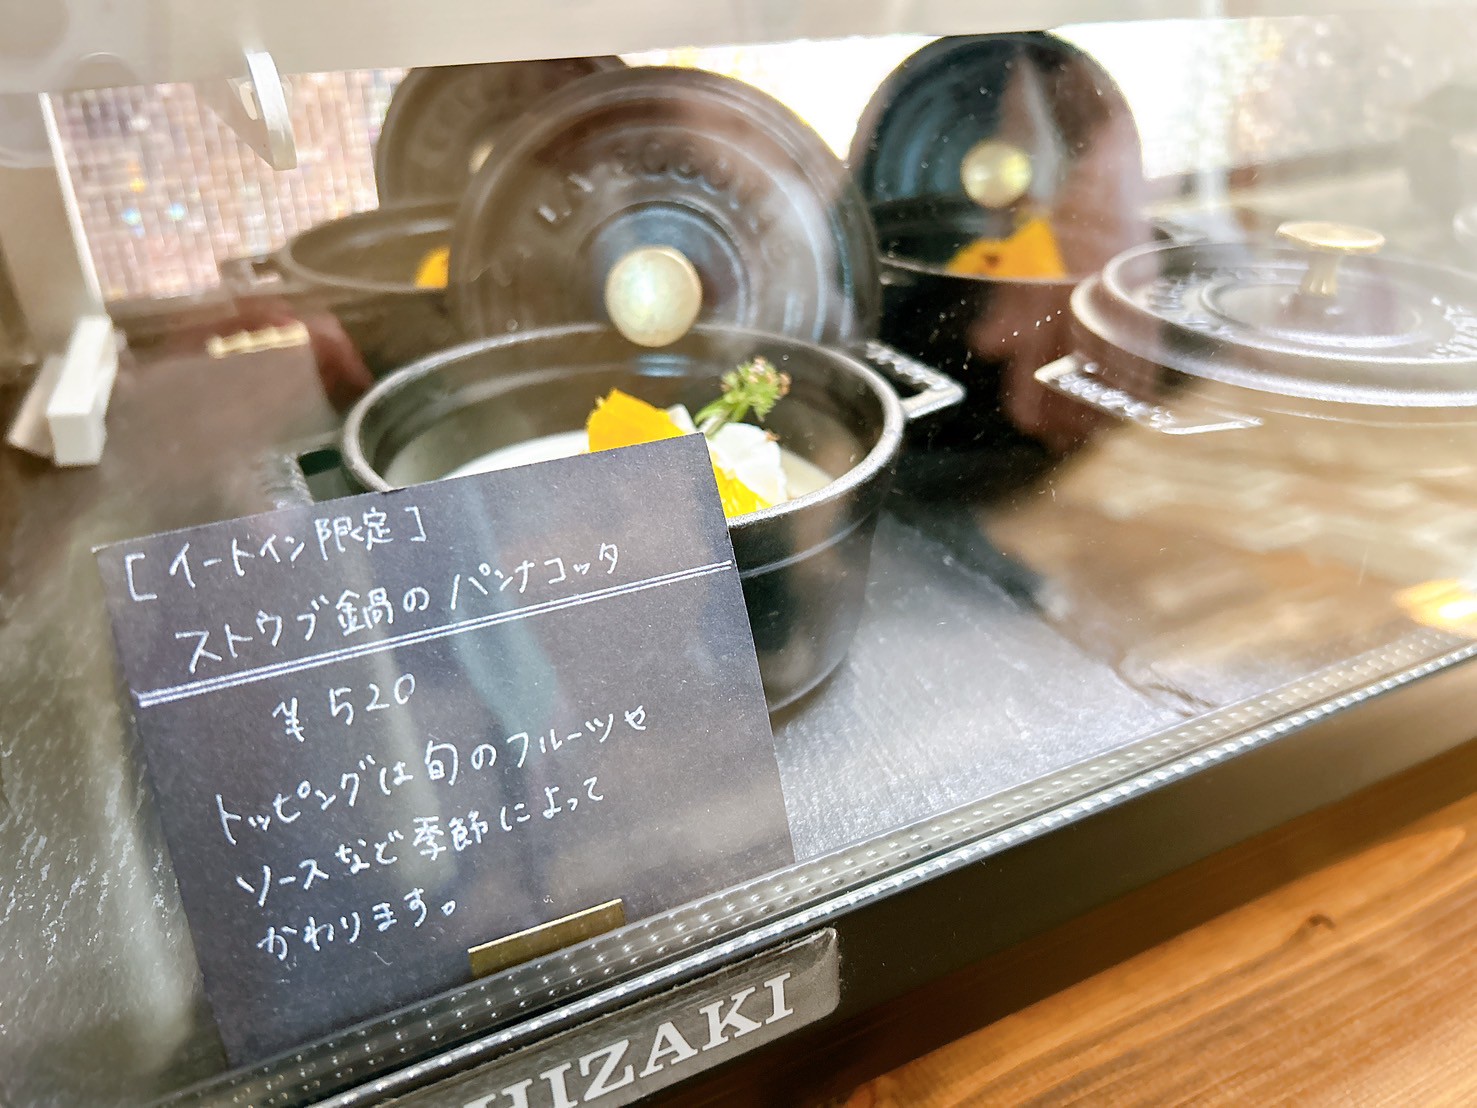 [イートイン限定]
ストウブ鍋のパンナコッタ
¥520
トッピングは旬のフルーツや
ソースなど季節によって
かわります。
HIZAKI